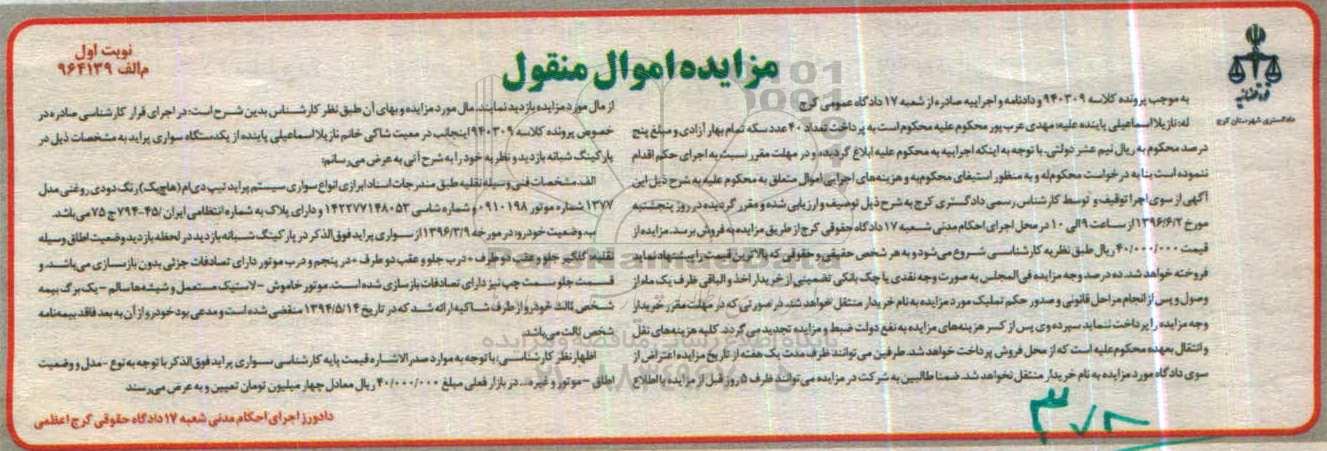 مزایده اموال منقول
نوبت اول
م‌الف ۹۶۴۱۳۹
قوه قضائیه
دادگستری شهرستان کرج
به موجب پرونده کلاسه ۹۴۰۳۰۹ و دادنامه و اجراییه صادره از شعبه ۱۷ دادگاه عمومی کرج
له: نازیلا اسماعیلی پاینده علیه: مهدی عرب پور محکوم علیه محکوم است به پرداخت تعداد ۴۰ عدد سکه تمام بهار آزادی و مبلغ پنج
درصد محکوم به ریال نیم عشر دولتی. با توجه به اینکه اجراییه به محکوم علیه ابلاغ گردیده و در مهلت مقرر نسبت به اجرای حکم اقدام
ننموده است بنا به درخواست محکوم‌له و به منظور استیفای محکوم‌به و هزینه‌های اجرایی اموال متعلق به محکوم علیه به شرح ذیل این
آگهی از سوی اجرا توقیف و توسط کارشناس رسمی دادگستری کرج به شرح ذیل توصیف و ارزیابی شده و مقرر گردیده در روز پنجشنبه
مورخ ۱۳۹۶/۶/۲ از ساعت ۹ الی ۱۰ در محل اجرای احکام مدنی شعبه ۱۷ دادگاه حقوقی کرج از طریق مزایده به فروش برسد. مزایده از
قیمت ۴۰/۰۰۰/۰۰۰ ریال طبق نظریه کارشناسی شروع می‌شود و به هر شخص حقیقی و حقوقی که بالاترین قیمت را پیشنهاد نماید
فروخته خواهد شد. ده درصد وجه مزایده فی‌المجلس به صورت وجه نقدی یا چک بانکی تضمینی از خریدار اخذ و الباقی ظرف یک ماه از
وصول و پس از انجام مراحل قانونی و صدور حکم تملیک مورد مزایده به نام خریدار منتقل خواهد شد. در صورتی که در مهلت مقرر خریدار
وجه مزایده را پرداخت ننماید سپرده وی پس از کسر هزینه‌های مزایده به نفع دولت ضبط و مزایده تجدید می گردد. کلیه هزینه‌های نقل
و انتقال بعهده محکوم علیه است که از محل فروش پرداخت خواهد شد. طرفین می توانند ظرف مدت یک هفته از تاریخ مزایده اعتراض از
سوی دادگاه مورد مزایده به نام خریدار منتقل نخواهد شد. ضمنا طالبین به شرکت در مزایده می‌توانند ظرف ۵ روز قبل از مزایده با اطلاع
از مال مورد مزایده بازدید نمایند. مال مورد مزایده و بهای آن طبق نظر کارشناس بدین شرح است: در اجرای قرار کارشناسی صادره در
خصوص پرونده کلاسه ۹۴۰۳۰۹ اینجانب در معیت شاکی خانم نازیلا اسماعیلی پاینده از یکدستگاه سواری پراید به مشخصات ذیل در
پارکینگ شبانه بازدید و نظریه خود را به شرح آتی به عرض می‌رسانم:
الف. مشخصات فنی وسیله نقلیه طبق مندرجات اسناد ابرازی انواع سواری سیستم پراید تیپ دی‌ام (هاچ‌بک) رنگ دودی روغنی مدل
۱۳۷۷ شماره موتور ۰۹۱۰۱۹۸ و شماره شاسی ۱۴۲۲۷۷۱۴۸۰۵۳ و دارای پلاک به شماره انتظامی ایران ۴۵/-۷۹۴ج۷۵ می‌باشد.
ب. وضعیت خودرو: در مورخه ۱۳۹۶/۳/۹ از سواری پراید فوق‌الذکر در پارکینگ شبانه بازدید در لحظه بازدید وضعیت اطاق وسیله
نقلیه: گلگیر جلو و عقب دو طرف - درب جلو و عقب دو طرف - در پنجم و درب موتور دارای تصادفات جزئی بدون بازسازی می‌باشد. و
قسمت جلو سمت چپ نیز دارای تصادفات بازسازی شده است. موتور خاموش - لاستیک مستعمل و شیشه‌ها سالم - یک برگ بیمه
شخص ثالث خودرو از طرف شاکیه ارائه شد که در تاریخ ۱۳۹۴/۵/۱۴ منقضی شده است و مدعی بود خودرو از آن به بعد فاقد بیمه‌نامه
شخص ثالث می‌باشد.
اظهار نظر کارشناسی: با توجه به موارد صدرالاشاره قیمت پایه کارشناسی سواری پراید فوق‌الذکر با توجه به نوع - مدل و وضعیت
اطاق - موتور و غیره... در بازار فعلی مبلغ ۴۰/۰۰۰/۰۰۰ ریال معادل چهار میلیون تومان تعیین و به عرض می‌رسد
دادورز اجرای احکام مدنی شعبه ۱۷ دادگاه حقوقی کرج اعظمی